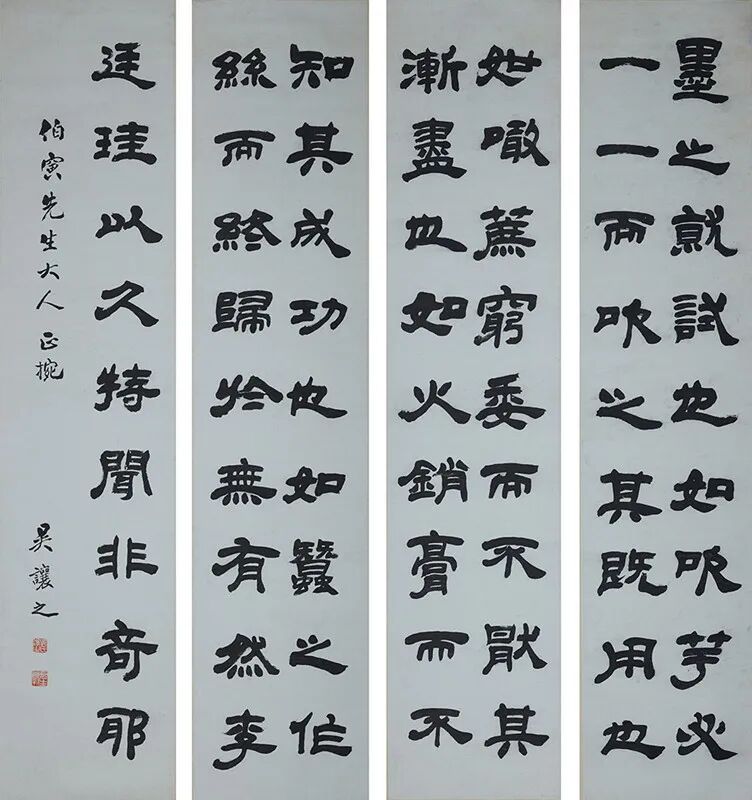 墨之就試也如吹竽必
一一而吹之其既用也
如噉蔗窮委而不厭其
漸盡也如火銷膏而不
知其成功也如蠶之作
絲而終歸於無有然李
廷珪以久特聞非奇耶
伯寅先生大人正捥
吳讓之